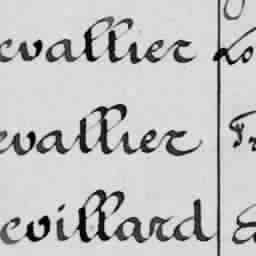 evallier Lo
evallier Fr
evillard